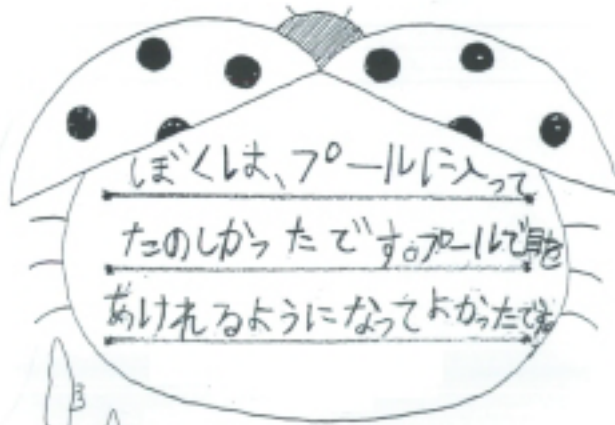 ぼくは、プールに入って
たのしかったです。プールで目を
あけれるようになってよかったです。